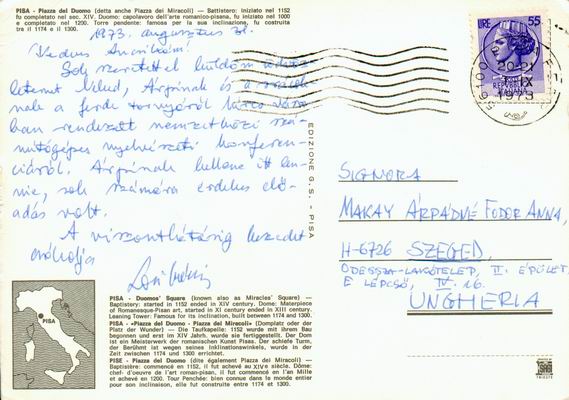 PISA - Piazza del Duomo (detta anche Piazza dei Miracoli) — Battistero: iniziato nel 1152
fu completato nel sec. XIV. Duomo: capolavoro dell'arte romanico-pisana, fu iniziato nel 1000
e completato nel 1200. Torre pendente: famosa per la sua inclinazione, fu costruita
tra il 1174 e il 1300.
1973. augusztus 31.
Kedves
Sok szeretettel küldöm üdvöz-
letemet Neked, Árpinak és a
nak a ferde tornyáról híres város-
ban rendezett nemzetközi szá-
mítógépes nyelvészeti konferen-
ciáról. Árpinak kellene itt len-
nie, sok számára érdekes elő-
adás volt.
A viszontlátásig kezedet
csókolja
EDIZIONE G. S. - PISA
LIRE 55
20-21
1 IX
1973
SIGNORA
MAKAY ÁRPÁDNÉ FODOR ANNA,
H-6726 SZEGED,
ODESSZA-LAKÓTELEP, II. ÉPÜLET,
E LÉPCSŐ, IV. 16.
UNGHERIA
PISA
PISA - Duomos' Square (known also as Miracles' Square) —
Baptistery: started in 1152 ended in XIV century. Dome: Materpiece
of Romanesque-Pisan art, started in XI century ended in XIII century.
Leaning Tower: Famous for its inclination, built between 1174 and 1300.
PISA - «Piazza del Duomo - Piazza dei Miracoli» (Domplatz oder der
Platz der Wunder) — Die Taufkapelle: 1152 wurde mit ihrem Bau
begonnen und erst im XIV Jahrh. wurde sie fertiggestellt. Der Dom
ist ein Meisterwerk der romanischen Kunst Pisas. Der schiefe Turm,
der Berühmt ist wegen seines Inklinationswinkels, wurde in der
Zeit zwischen 1174 und 1300 errichtet.
PISE - Piazza del Duomo (dite également Piazza dei Miracoli) —
Baptistère: commencé en 1152, il fut achevé au XIVe siècle. Dôme:
chef-d'oeuvre de l'art roman-pisan, il fut commencé en l'an Mille
et achevé en 1200. Tour Penchée: bien connue dans le monde entier
pour son inclinaison, elle fut construite entre 1174 et 1300.